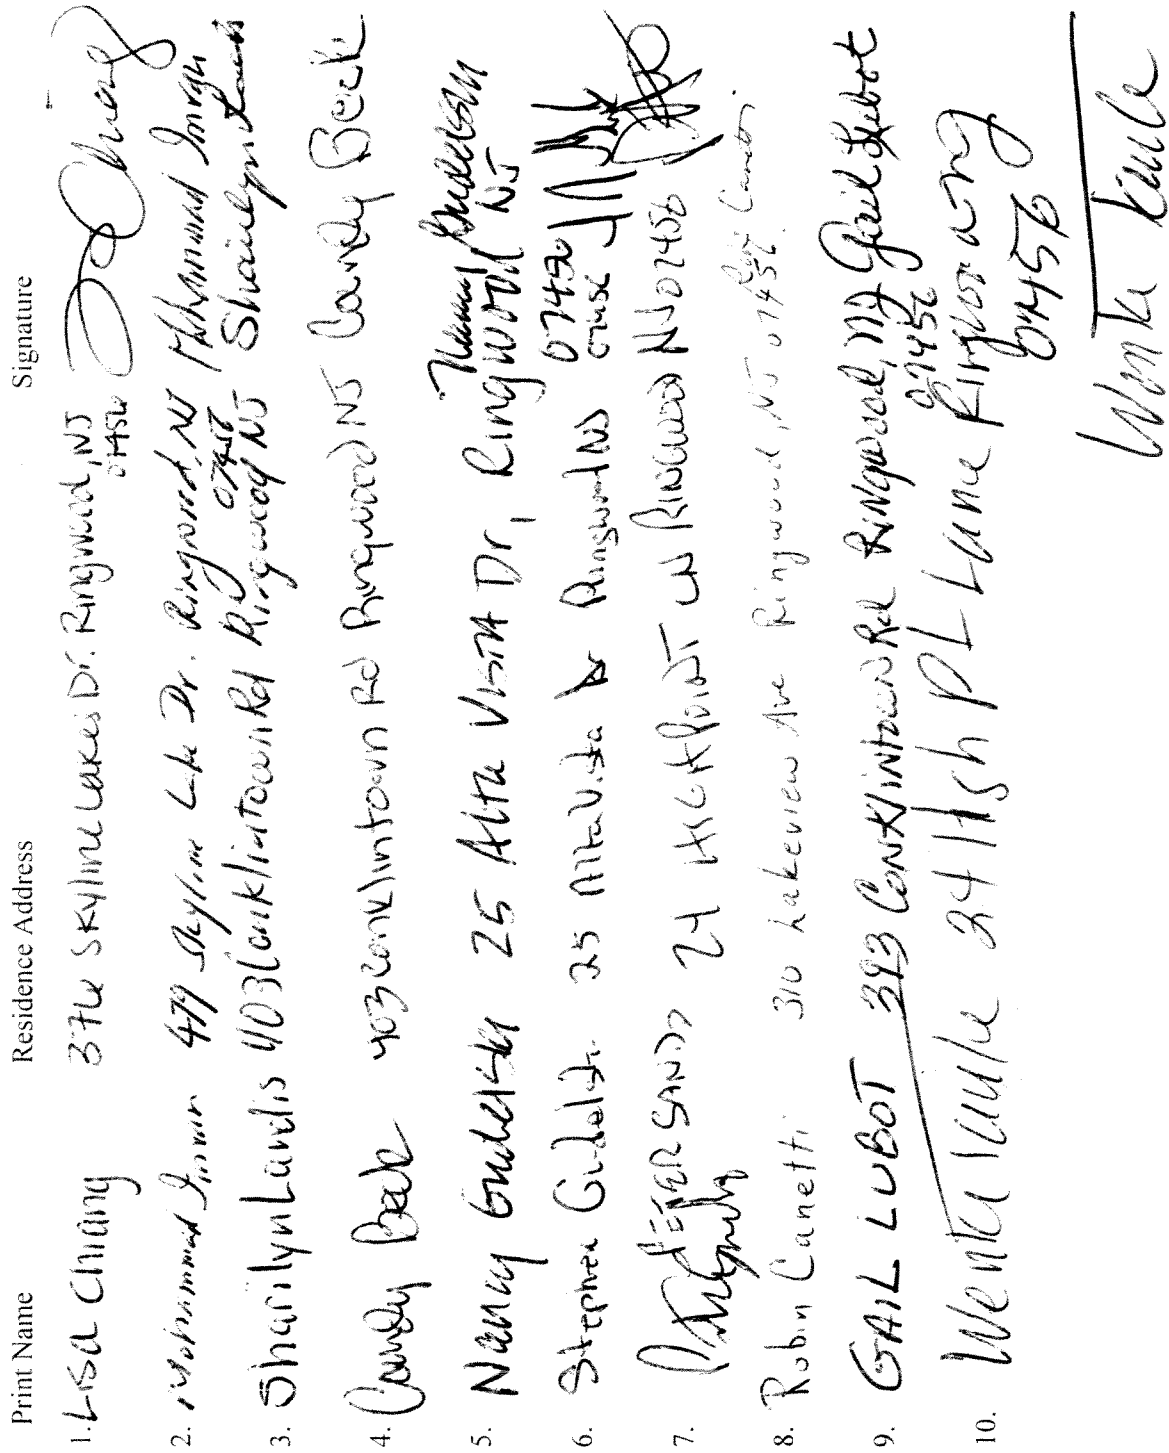 Print Name Residence Address Signature
1. Lisa Chiang 376 Skyline Lakes Dr. Ringwood, NJ
07456
2. Mohammad Imran 479 Skyline Lake Dr. Ringwood, NJ Mohammad Imran
07456
3. Sharilyn Landis 403 Conklintown Rd Ringwood NJ
4. Candy Beck 403 Conklintown Rd Ringwood NJ Candy Beck
5. Nancy 25 Alta Vista Dr, Ringwood NJ
07456
6. Stephen 25 Alta Vista Dr Ringwood NJ
7. PETER SANDS 24 HIGH POINT LN RINGWOOD NJ 07456
8. Robin Canetti 310 Lakeview Ave Ringwood, NJ 07456 Robin Canetti
9. GAIL LUBOT 393 Conklintown Rd Ringwood, NJ Gail Lubot
07456
10. 24 High Pt Lane Ringwood NJ
07456